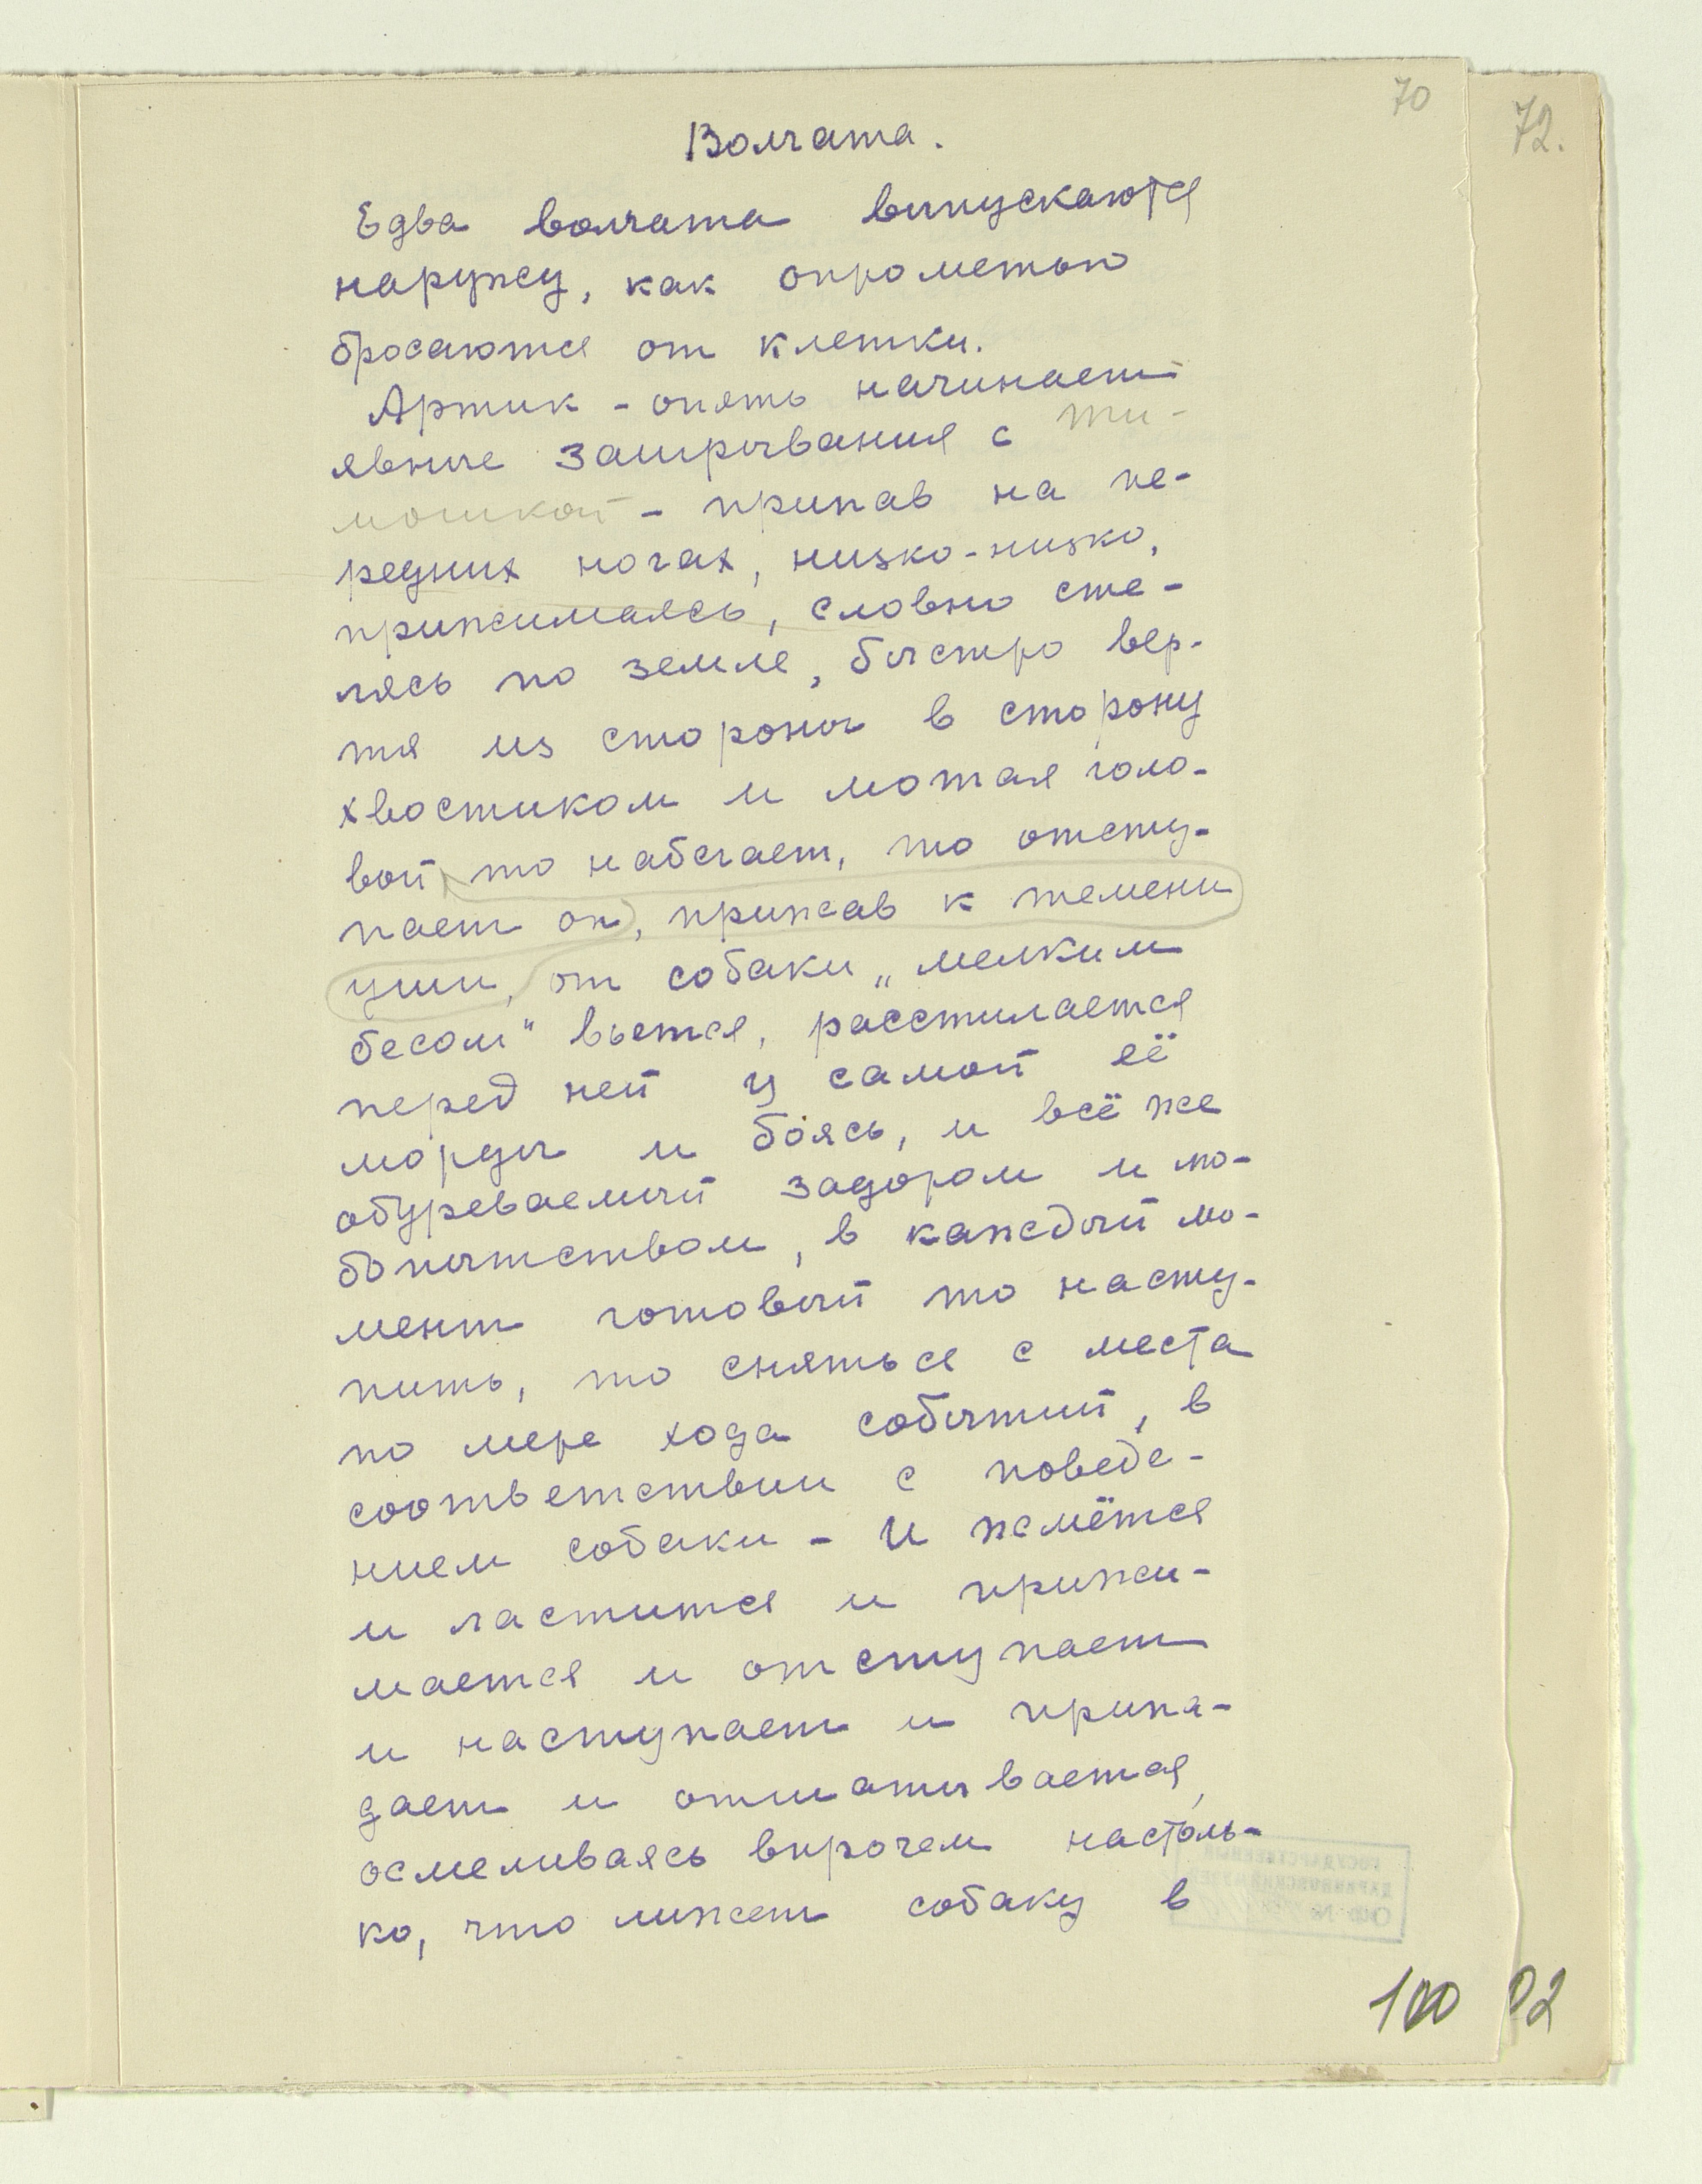 70
72.
Волчата.
Едва волчата выпускаются
наружу, как опрометью
бросаются от клетки.
Артик - опять начинает
явные заигрывания с Ти-
мошкой - припав на пе-
редних ногах, низко-низко,
прижимаясь, словно сте-
лясь по земле, быстро вер-
тя из стороны в сторону
хвостиком и мотая голо-
вой то набегает, то отсту-
пает он, прижав к темени
уши, от собаки „мелким
бесом" вьется, расстилается
перед ней у самой её
морды и боясь, и всё же
обуреваемый задором и лю-
бопытством, в каждый мо-
мент готовый то насту-
пить, то сняться с места
по мере хода событий, в
соответствии с поведе-
нием собаки - и жмётся
и ластится и прижи-
мается и отступает
и наступает и припа-
дает и отшатывается,
осмеливаясь впрочем настоль-
ко, что лижет собаку в
ГОСУДАРСТВЕННЫЙ
ДАРВИНОВСКИЙ МУЗЕЙ
100